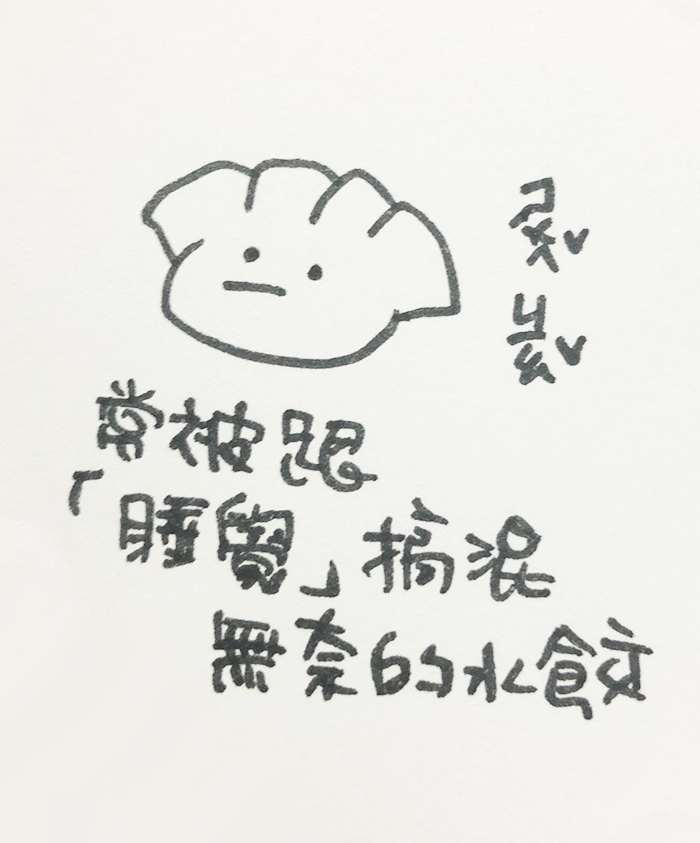 ㄕㄨㄟˇ
ㄐㄧㄠˇ
常被跟
「睡覺」搞混
無奈的水餃